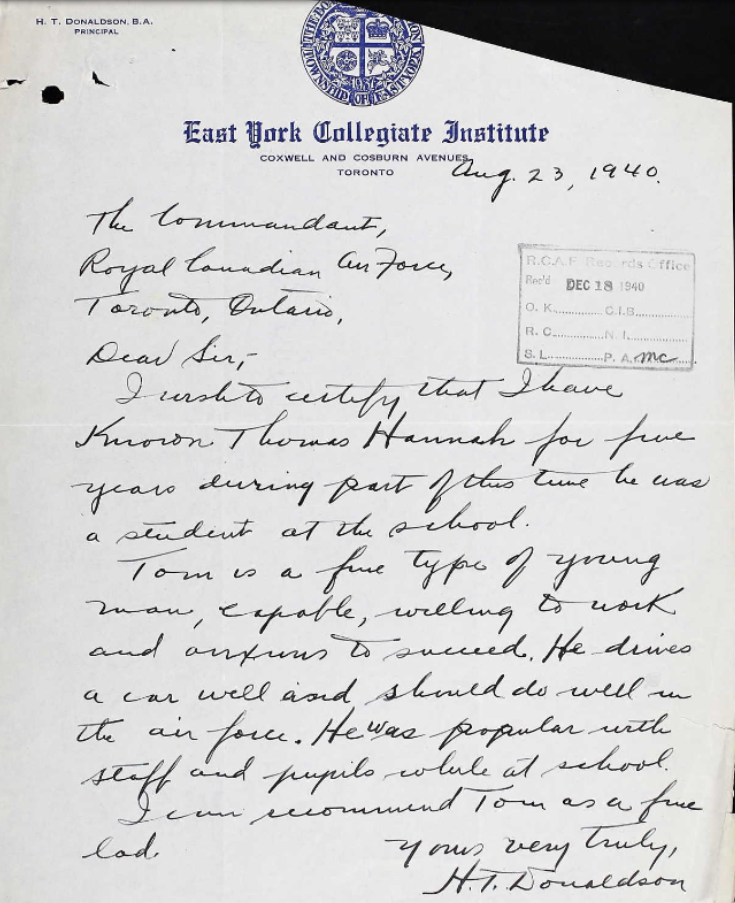 H. T. DONALDSON, B.A.
PRINCIPAL
TOWNSHIP OF EAST YORK
East York Collegiate Institute
COXWELL AND COSBURN AVENUES
TORONTO
Aug. 23, 1940.
The Commandant,
Royal Canadian Air Force,
Toronto, Ontario,
R.C.A.F. Records Office
Rec'd DEC 18 1940
O. K. C.I.B.
R. C. N. I.
S. L. P. A. mc
Dear Sir,-
I wish to certify that I have
Known Thomas Hannah for five
years during part of this time he was
a student at the school.
Tom is a fine type of young
man, capable, willing to work
and anxious to succeed. He drives
a car well and should do well in
the air force. He was popular with
staff and pupils while at school.
I can recommend Tom as a fine
lad.
Yours very truly,
H.T. Donaldson